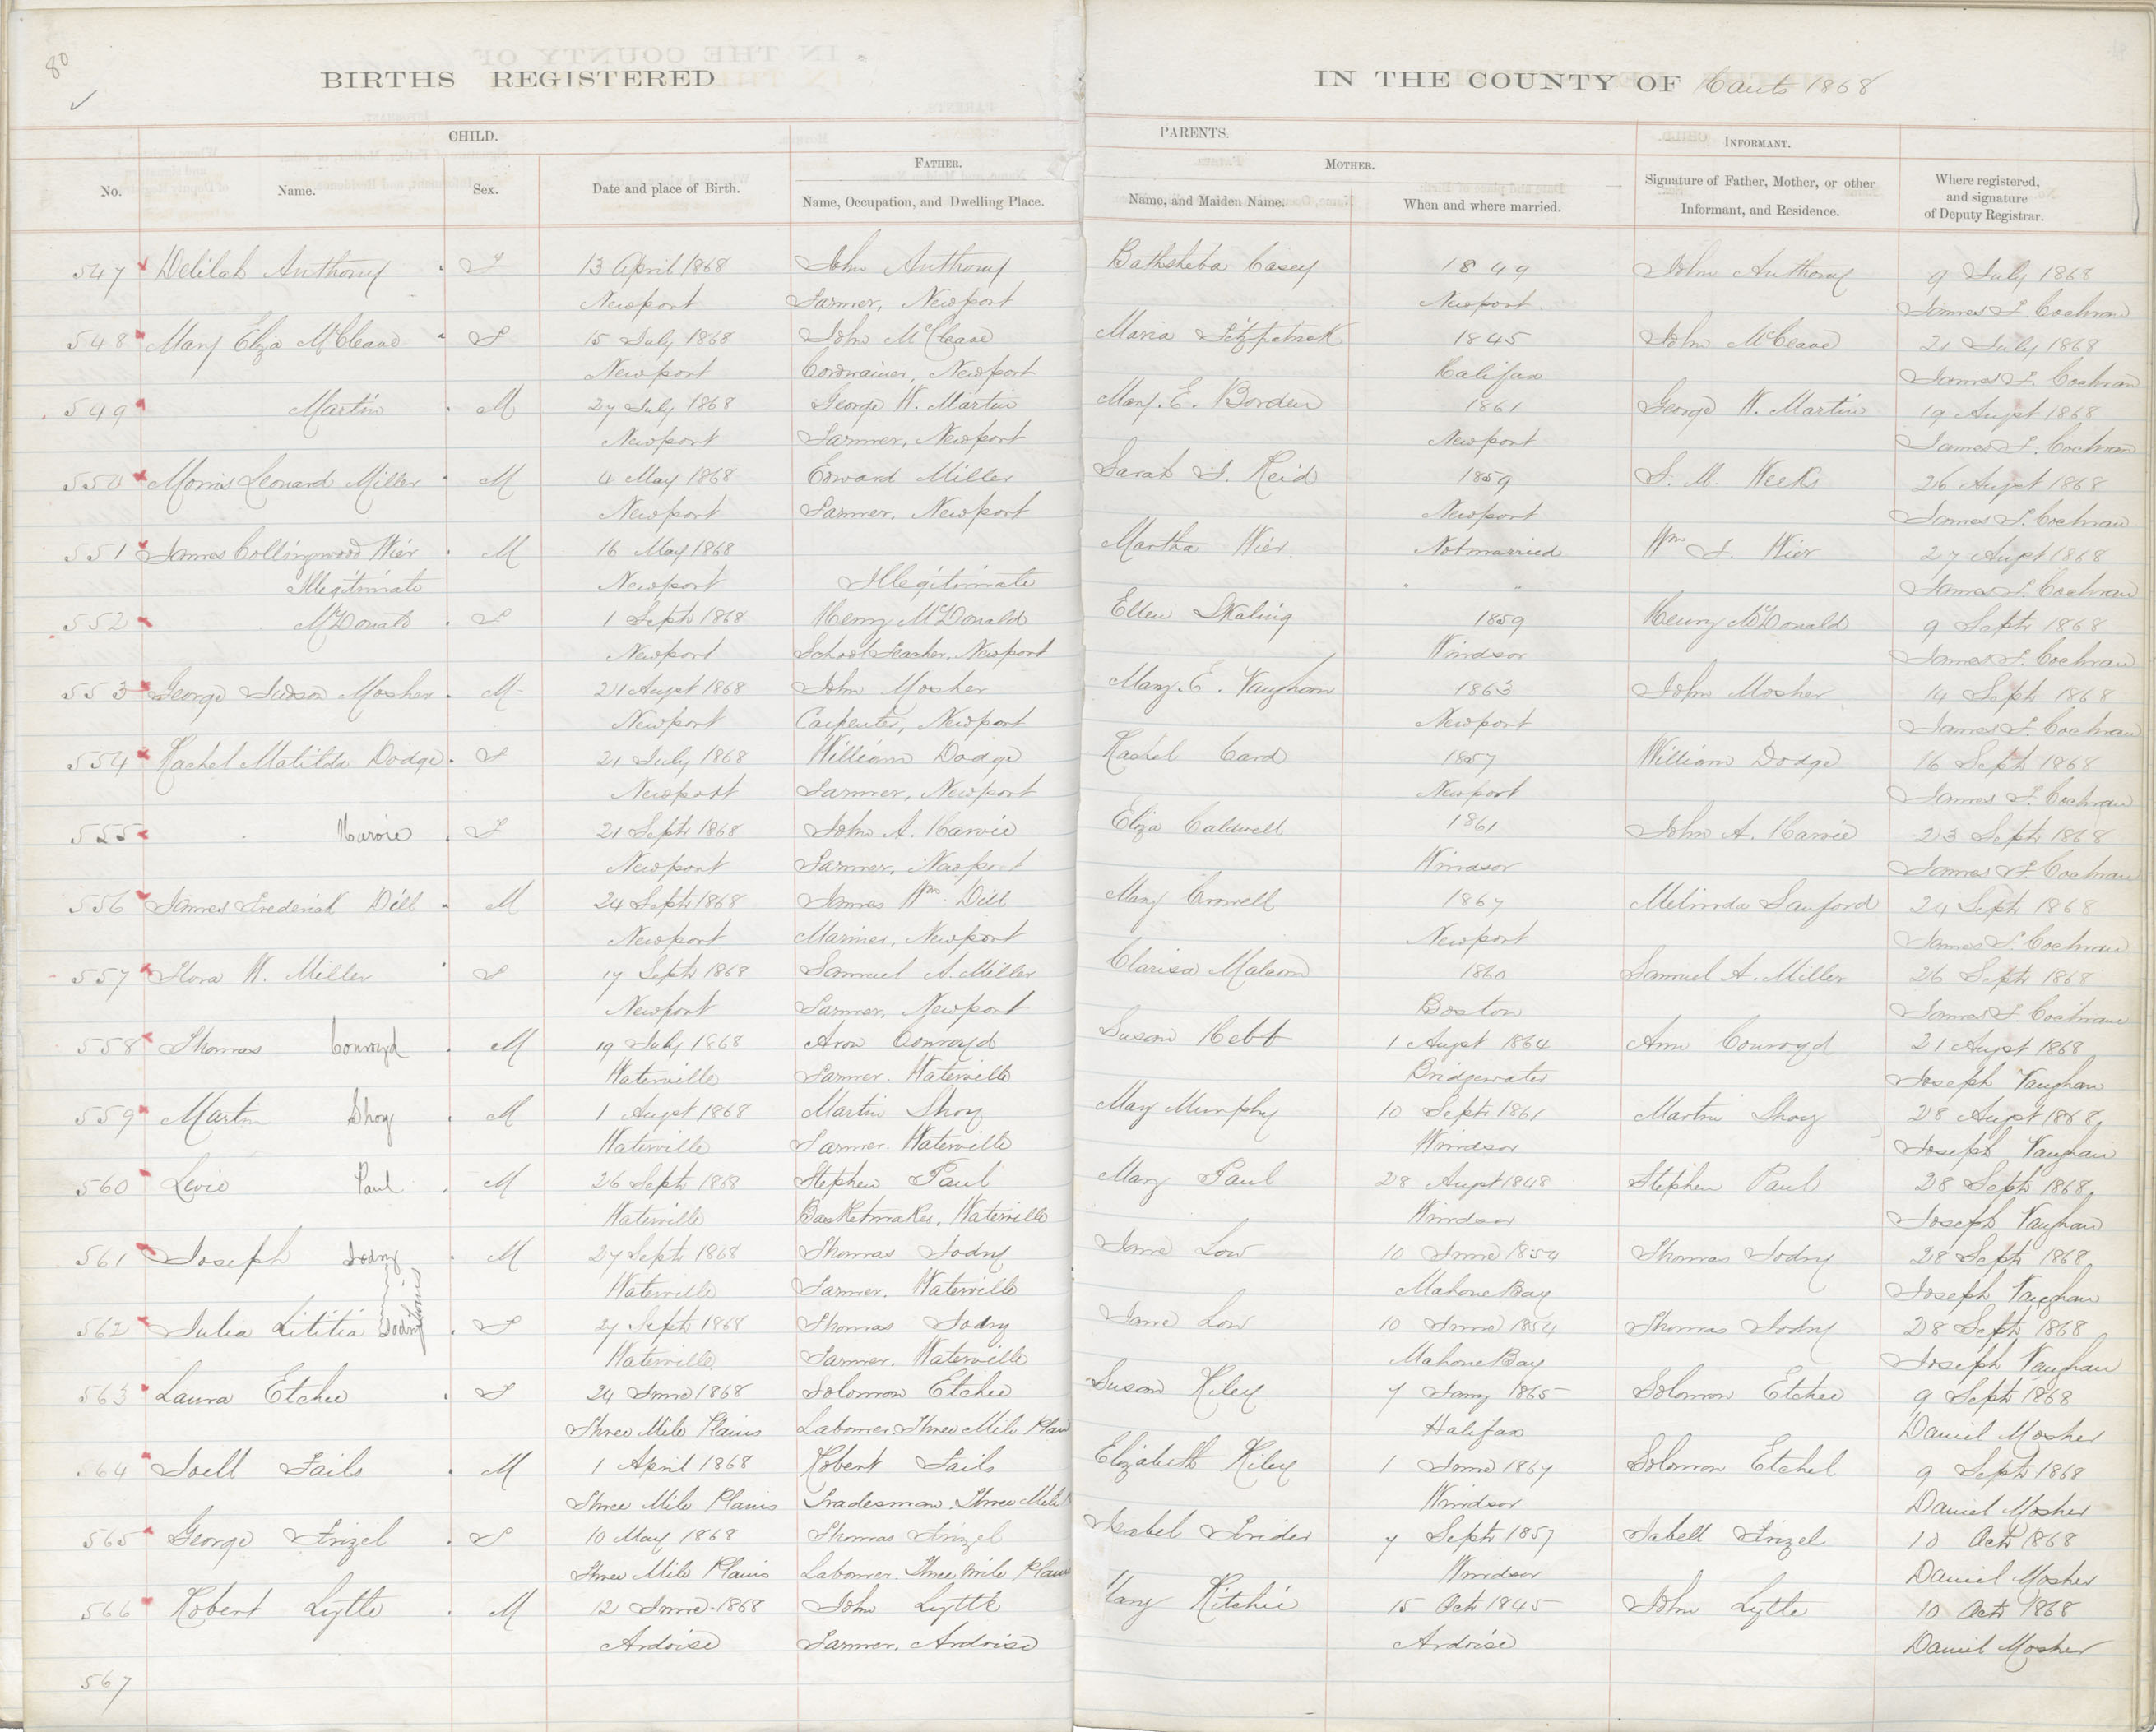 80
BIRTHS REGISTERED IN THE COUNTY OF Hants 1868
CHILD. PARENTS. INFORMANT.
FATHER. MOTHER.
No. Name. Sex. Date and place of Birth. Name, Occupation, and Dwelling Place. Name, and Maiden Name. When and where married. Signature of Father, Mother, or other Informant, and Residence. Where registered, and signature of Deputy Registrar.
547 Delilah Anthony F 13 April 1868 John Anthony Bathsheba Casey 1849 John Anthony 9 July 1868
Newport Farmer, Newport Newport James F. Cochran
548 Mary Eliza McCleave F 15 July 1868 John McCleave Maria Fitzpatrick 1845 John McCleave 21 July 1868
Newport Cordwainer, Newport Halifax James F. Cochran
549 Martin M 27 July 1868 George W. Martin Mary. E. Borden 1861 George W. Martin 19 Augst 1868
Newport Farmer, Newport Newport James F. Cochran
550 Morris Leonard Miller M 4 May 1868 Edward Miller Sarah J. Reid 1859 S. M. Weeks 26 Augst 1868
Newport Farmer, Newport Newport James F. Cochran
551 James Collingwood Wier M 16 May 1868 Martha Wier Not married Wm J. Wier 27 Augst 1868
Illegitimate Newport Illegitimate James F. Cochran
552 McDonald F 1 Septr 1868 Henry McDonald Ellen Skaling 1859 Henry McDonald 9 Septr 1868
Newport School Teacher, Newport Windsor James F. Cochran
553 George Judson Mosher M 21 Augst 1868 John Mosher Mary. E. Vaughan 1863 John Mosher 14 Septr 1868
Newport Carpenter, Newport Newport James F. Cochran
554 Rachel Matilda Dodge F 21 July 1868 William Dodge Rachel Card 1857 William Dodge 16 Septr 1868
Newport Farmer, Newport Newport James F. Cochran
555 Harvie F 21 Septr 1868 John A. Harvie Eliza Caldwell 1861 John A. Harvie 23 Septr 1868
Newport Farmer, Newport Windsor James F Cochran
556 James Frederick Dill M 24 Septr 1868 James Wm Dill Mary Crowell 1867 Melinda Sanford 24 Septr 1868
Newport Mariner, Newport Newport James F. Cochran
557 Flora W. Miller F 17 Septr 1868 Samuel A. Miller Clarisa Malcom 1860 Samuel A. Miller 26 Septr 1868
Newport Farmer, Newport Boston James F. Cochran
558 Thomas Conroyd M 19 July 1868 Aron Conroyd Susan Hebb 1 Augst 1864 Ann Conroyd 21 Augst 1868
Waterville Farmer. Waterville Bridgewater Joseph Vaughan
559 Martin Shoy M 1 Augst 1868 Martin Shoy Mary Murphy 10 Septr 1861 Martin Shoy 28 Augst 1868
Waterville Farmer. Waterville Windsor Joseph Vaughan
560 Levie Paul M 26 Septr 1868 Stephen Paul Mary Paul 28 Augst 1848 Stephen Paul 28 Septr 1868
Waterville Basketmaker, Waterville Windsor Joseph Vaughan
561 Joseph Todry M 27 Septr 1868 Thomas Todry Jane Low 10 June 1854 Thomas Todry 28 Septr 1868
Twins
Waterville Farmer. Waterville Mahone Bay Joseph Vaughan
562 Julia Lititia Todry F 27 Septr 1868 Thomas Todry Jane Low 10 June 1854 Thomas Todry 28 Septr 1868
Waterville Farmer. Waterville Mahone Bay Joseph Vaughan
563 Laura Etchee F 24 June 1868 Solomon Etchee Susan Riley 7 Jany 1865 Solomon Etchee 9 Septr 1868
Three Mile Plains Labourer. Three Mile Plain Halifax Daniel Mosher
564 Joell Fails M 1 April 1868 Robert Fails Elizabeth Riley 1 June 1867 Solomon Etchel 9 Septr 1868
Three Mile Plains Tradesman. Three Mile Windsor Daniel Mosher
565 George Frizel F 10 May 1868 Thomas Frizel Isabel Frider 7 Septr 1857 Isabell Frizel 10 Octr 1868
Three Mile Plains Labourer. Three Mile Plains Windsor Daniel Mosher
566 Robert Lytle M 12 June 1868 John Lyttle Mary Ritchie 15 Octr 1845 John Lytle 10 Octr 1868
Ardoise Farmer. Ardoise Ardoise Daniel Mosher
567